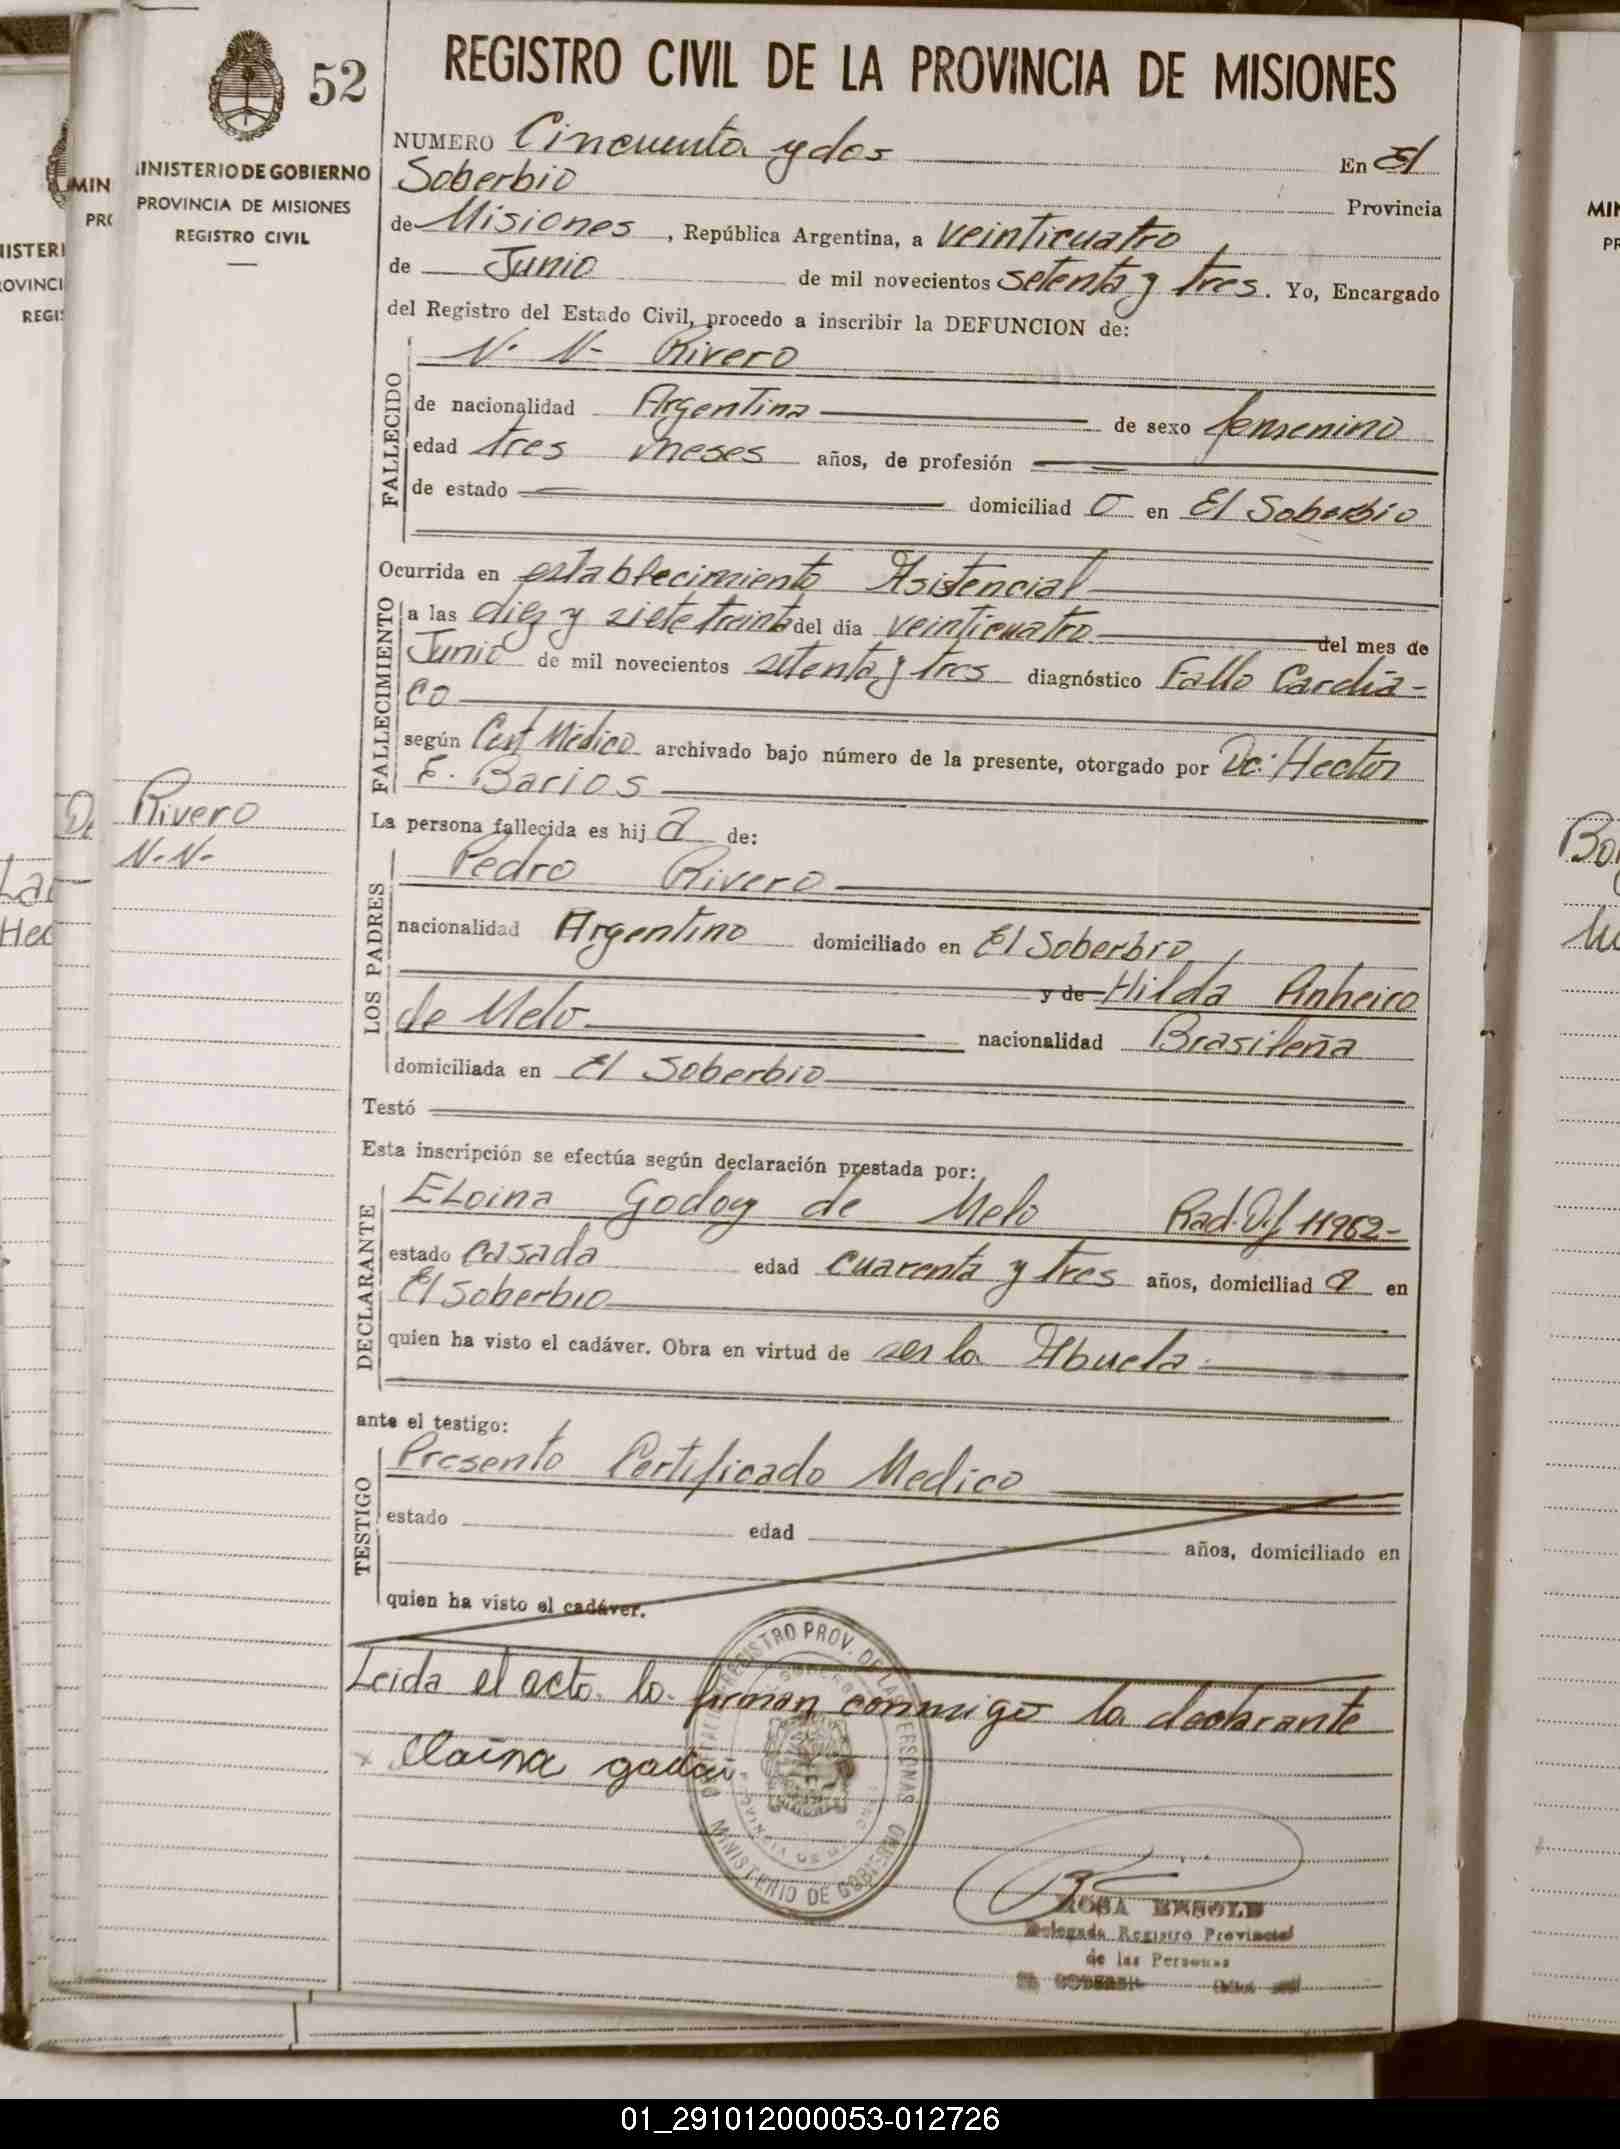 52
REGISTRO CIVIL DE LA PROVINCIA DE MISIONES
MINISTERIO DE GOBIERNO
PROVINCIA DE MISIONES
REGISTRO CIVIL
NUMERO Cincuenta y dos En El
Soberbio Provincia
de Misiones, República Argentina, a veinticuatro
de Junio de mil novecientos setenta y tres. Yo, Encargado
del Registro del Estado Civil, procedo a inscribir la DEFUNCION de:
FALLECIDO
N. N- Rivero
de nacionalidad Argentina de sexo femenino
edad tres meses años, de profesión
de estado domiciliad o en El Soberbio
Ocurrida en establecimiento Asistencial
FALLECIMIENTO
a las diez y siete treinta del día veinticuatro del mes de
Junio de mil novecientos setenta y tres diagnóstico Fallo Cardia-
co
según Cert Médico archivado bajo número de la presente, otorgado por Dr: Hector
E. Barios
Rivero
N.N-
La persona fallecida es hij a de:
LOS PADRES
Pedro Rivero
nacionalidad Argentino domiciliado en El Soberbio
y de Hilda Pinheiro
de Melo nacionalidad Brasileña
domiciliada en El Soberbio
Testó
Esta inscripción se efectúa según declaración prestada por:
DECLARANTE
ELoina Godoy de Melo Rad. Of 11962-
estado casada edad cuarenta y tres años, domiciliad a en
El Soberbio
quien ha visto el cadáver. Obra en virtud de ser la Abuela
ante el testigo:
TESTIGO
Presento Certificado Medico
estado edad años, domiciliado en
quien ha visto el cadáver.
Leida el acto lo firman conmigo la declarante
x Eloina godoi
REGISTRO PROV. DE LAS PERSONAS
MINISTERIO DE GOBIERNO
ROSA BESOLD
Delegada Registro Provincial
de las Personas
01_291012000053-012726